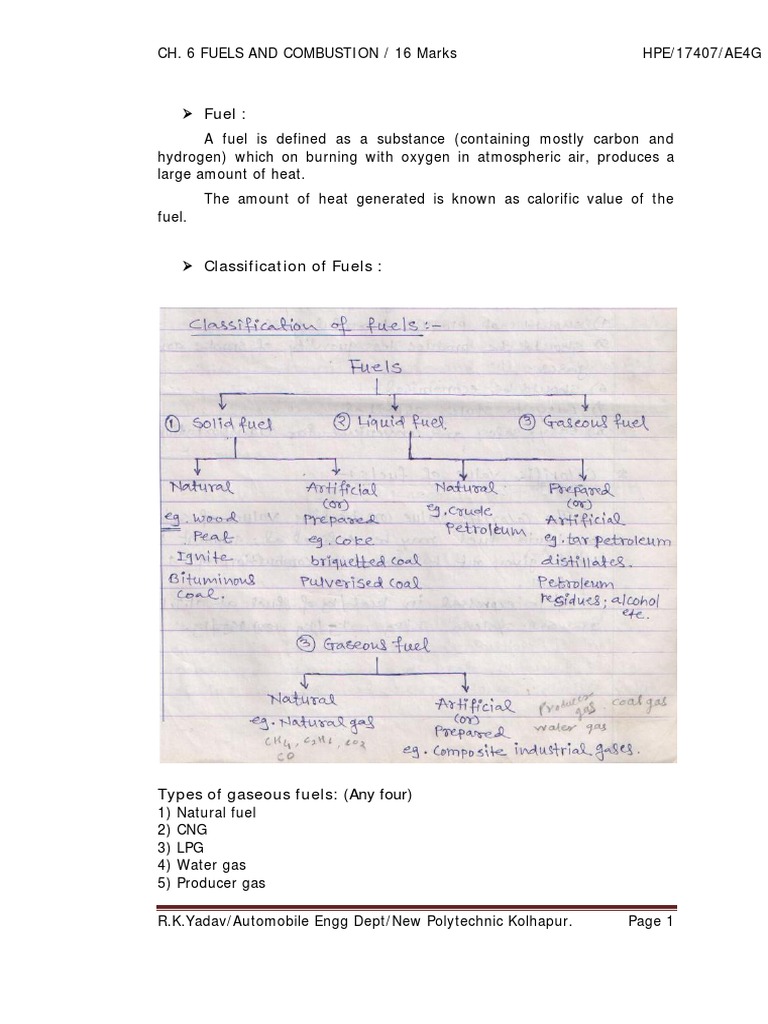 CH. 6 FUELS AND COMBUSTION / 16 Marks HPE/17407/AE4G
➢ Fuel :
A fuel is defined as a substance (containing mostly carbon and
hydrogen) which on burning with oxygen in atmospheric air, produces a
large amount of heat.
The amount of heat generated is known as calorific value of the
fuel.
➢ Classification of Fuels :
Classification of fuels:-
Fuels
① Solid fuel ② Liquid fuel ③ Gaseous fuel
Natural Artificial Natural Prepared
(or) eg. Crude (or)
eg. Wood Prepared Petroleum. Artificial
Peat eg. Coke eg. tar petroleum
Ignite briquetted coal distillates.
Bituminous Pulverised coal Petroleum
coal. residues; alcohol
etc.
③ Gaseous fuel
Natural Artificial Producer gas coal gas
eg. Natural gas (or) water gas
CH4, C2H6, CO2 Prepared
CO eg. Composite industrial gases.
Types of gaseous fuels: (Any four)
1) Natural fuel
2) CNG
3) LPG
4) Water gas
5) Producer gas
R.K.Yadav/Automobile Engg Dept/New Polytechnic Kolhapur. Page 1